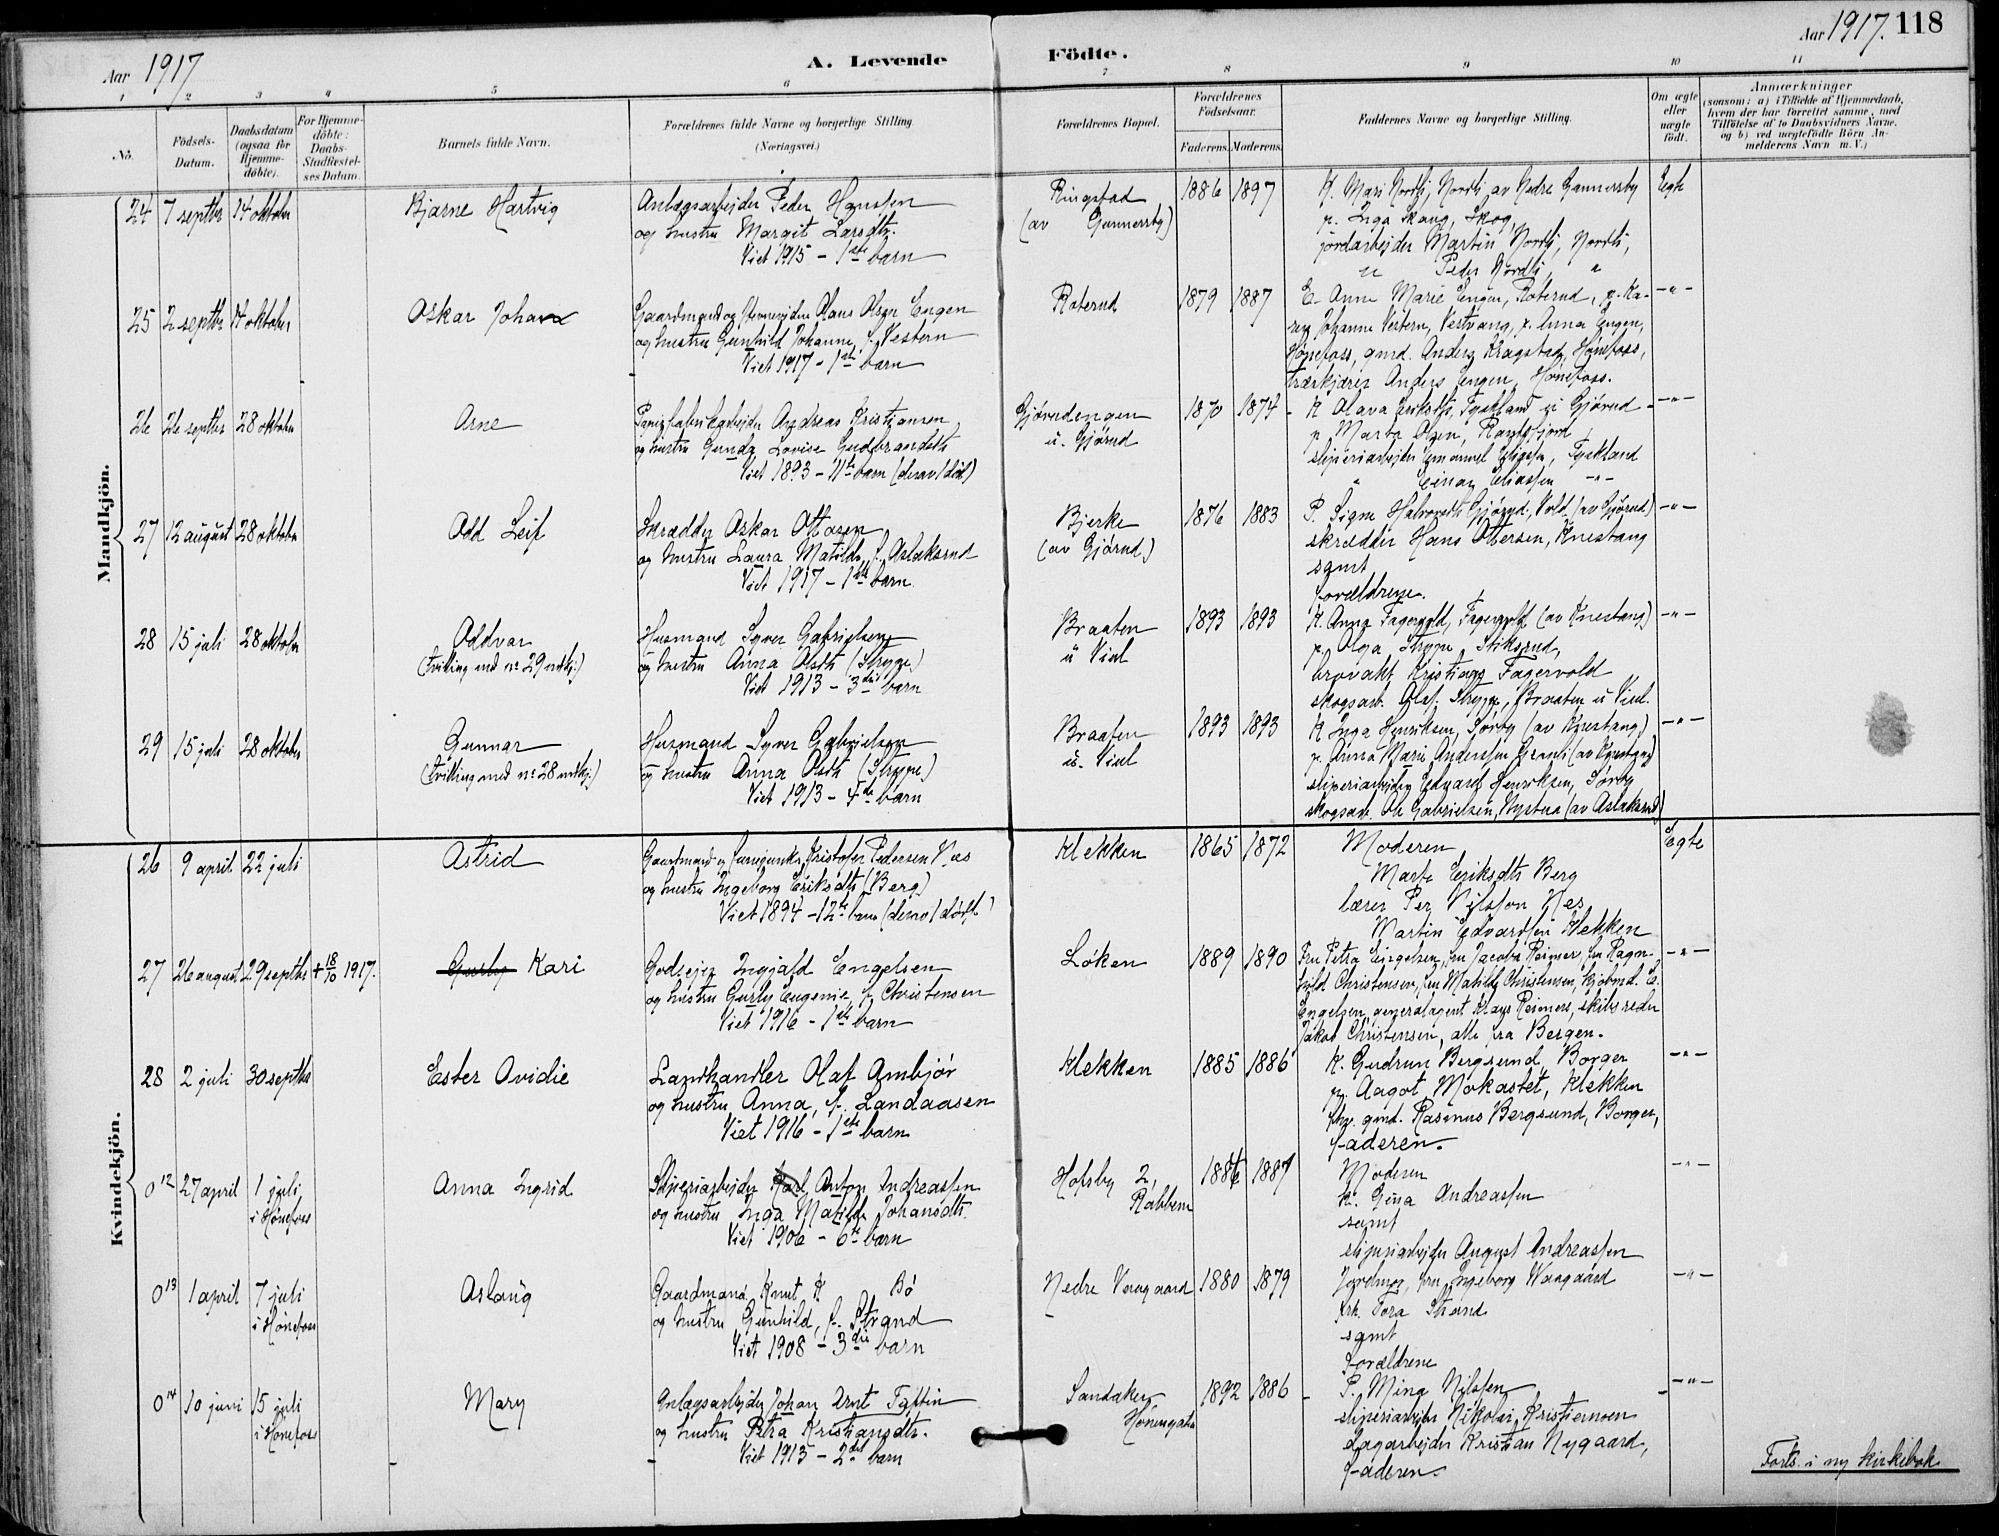 Aar 1917
A. Levende Födte.
Aar 1917. 118
1 2 3 4 5 6 7 8 9 10 11
No.
Födsels-Datum.
Daabsdatum (ogsaa for Hjemme-döbte).
For Hjemme-döbte: Daabs-Stadfæstel-ses Datum.
Barnets fulde Navn.
Forældrenes fulde Navne og borgerlige Stilling (Næringsvei.)
Forældrenes Bopæl.
Forældrenes Födselsaar.
Faderens. Moderens.
Faddernes Navne og borgerlige Stilling.
Om ægte eller uægte födt.
Anmærkninger
(saasom: a) i Tilfælde af Hjemmedaab, hvem der har forrettet samme, med Tilföielse af to Daabsvidners Navne, og b) ved uægtefödte Börn An-melderens Navn m. V.)
Mandkjön.
24 7 septbr 14 oktober Bjarne Hartvig
Anlægsarbejder Peder Hanssen
og hustru Margit Larsdtr.
Viet 1915 - 1ste barn
Ringstad
(av Gunnersby)
1886 1897
K. Mari Nordli, Nordli av Nedre Gunnersby
p. Inga Skaug, Skog,
jordarbejder Martin Nordli, Nordli,
" Peder Nordli "
Egte
25 2 septbr 14 oktober Oskar Johan
Gaardmand og Olaus Olsen Engen
og hustru Gunhild Johanne, f. Vestern
Viet 1917 - 1ste barn
Roterud
1879 1887
E. Anne Marie Engen, Roterud, p. Ka-
ren Johanne Vestern, Vestvang, p. Anna Engen,
Hønefoss, gmd. Anders Kragstad, Hønefoss,
Anders Engen, Hønefoss.
-"-
26 26 septbr 28 oktober Arne
Papirfabrikarbejder Andreas Kristiansen
og hustru Gunda Lovise Gudbrandsdtr
Viet 1893 - 11te barn (derav 1 död)
Gjörudengen
u. Gjörud
1870 1874
K Olava Eriksdtr, Fyskland u Gjörud
p Marta Olsen, Randsfjord
sliperiarbejder Emanuel Eliassen, Fyskland
" Einar Eliassen -"-
-"-
27 12 august 28 oktober Odd Leif
Skrædder Oskar Ottosen
og hustru Laura Matilde, f. Aslaksrud
Viet 1917 - 1ste barn.
Bjerke
(av Gjörud)
1876 1883
P. Signe Halvorsdtr Gjörud, Vold (av Gjörud)
skrædder Hans Ottersen, Knestang
samt
forældrene.
-"-
28 15 juli 28 oktober Oddvar
(tvilling med nr 29 mdkj.)
Husmand Syver Gabrielsen
og hustru Anna Olsdtr (Strype)
Viet 1913 - 3die barn
Braaten
u Viul
1893 1893
K. Anna Fagervold, Fagervold (av Knestang)
p. Olga Strype, Stiksrud,
brovakt Kristians Fagervold
skogsarb. Olaf Strype, Braaten u Viul.
-"-
29 15 juli 28 oktober Gunnar
(tvilling med nr 28 mdkj.)
Husmand Syver Gabrielsen
og hustru Anna Olsdtr (Strype)
Viet 1913 - 4de barn
Braaten
u. Viul
1893 1893
K Inga Henriksen, Sörby (av Knestang)
p. Anna Marie Anderssen (av Knestang)
sliperiarbejder Edvard Henriksen, Sörby
skogsarb. Ole Gabrielsen, Nystua (av Aslaksrud)
-"-
Kvindekjön.
26 9 april 22 juli Astrid
Gaardmand og Kristofer Pedersen Næs
og hustru Ingeborg Eriksdtr (Berg)
Viet 1894 - 12te barn (derav 1 dödf.)
Klekken
1865 1872
Moderen
Marte Eriksdtr Berg
lærer Per Nilsson Nes
Martin Edvardsen Klekken
Egte
27 26 august 29 septbr + 18/10 1917. Gurly Kari
Godsejer Ingjald Engelsen
og hustru Gurly Eugenie, f. Christensen
Viet 1916 - 1ste barn
Løken
1889 1890
Fru Petra Engelsen, fru Jacobe Reimers, fru Ragn-
hild Christensen, fru Matilde Christensen, kjöbmd. E.
Engelsen, generalagent Klaus Reimers, skibsreder
Jakob Christensen, alle fra Bergen.
-"-
28 2 juli 30 septbr Ester Ovidie
Landhandler Olaf Ambjör
og hustru Anna, f. Landaasen
Viet 1916 - 1ste barn
Klekken
1885 1886
K. Gudrun Bergsund, Borger
p. Aagot Mokastet, Klekken
gmd. Rasmus Bergsund, Borger,
faderen.
-"-
0 12 27 april 1 juli
i Hønefoss
Anna Ingrid
Sliperiarbejder Karl Anton Andreassen
og hustru Inga Matilde Johansdtr.
Viet 1906 - 6te barn
Hofsby 2,
Rabbern
1886 1887
Moderen
k. Gina Andreassen
samt
sliperiarbejder August Andreassen
-"-
0 13 1 april 7 juli
i Hønefoss
Aslaug
Gaardmand Knut K Bö
og hustru Gunhild, f. Strand
Viet 1908 - 3die barn
Nedre Vaagaard
1880 1879
Jordmor, fru Ingeborg Waagaard
frk. Tora Strand
samt
forældrene
-"-
0 14 10 juni 15 juli
i Hønefoss
Mary
Anlægsarbejder Johan Arnt Taftin
og hustru Petra Kristiansdtr.
Viet 1913 - 2det barn
Sandaker
Hønengata
1892 1886
P. Mina Nilssen
sliperiarbejder Nikolai Kristiernsen
dagarbejder Kristian Nygaard,
faderen.
-"-
Forts. i ny kirkebok.